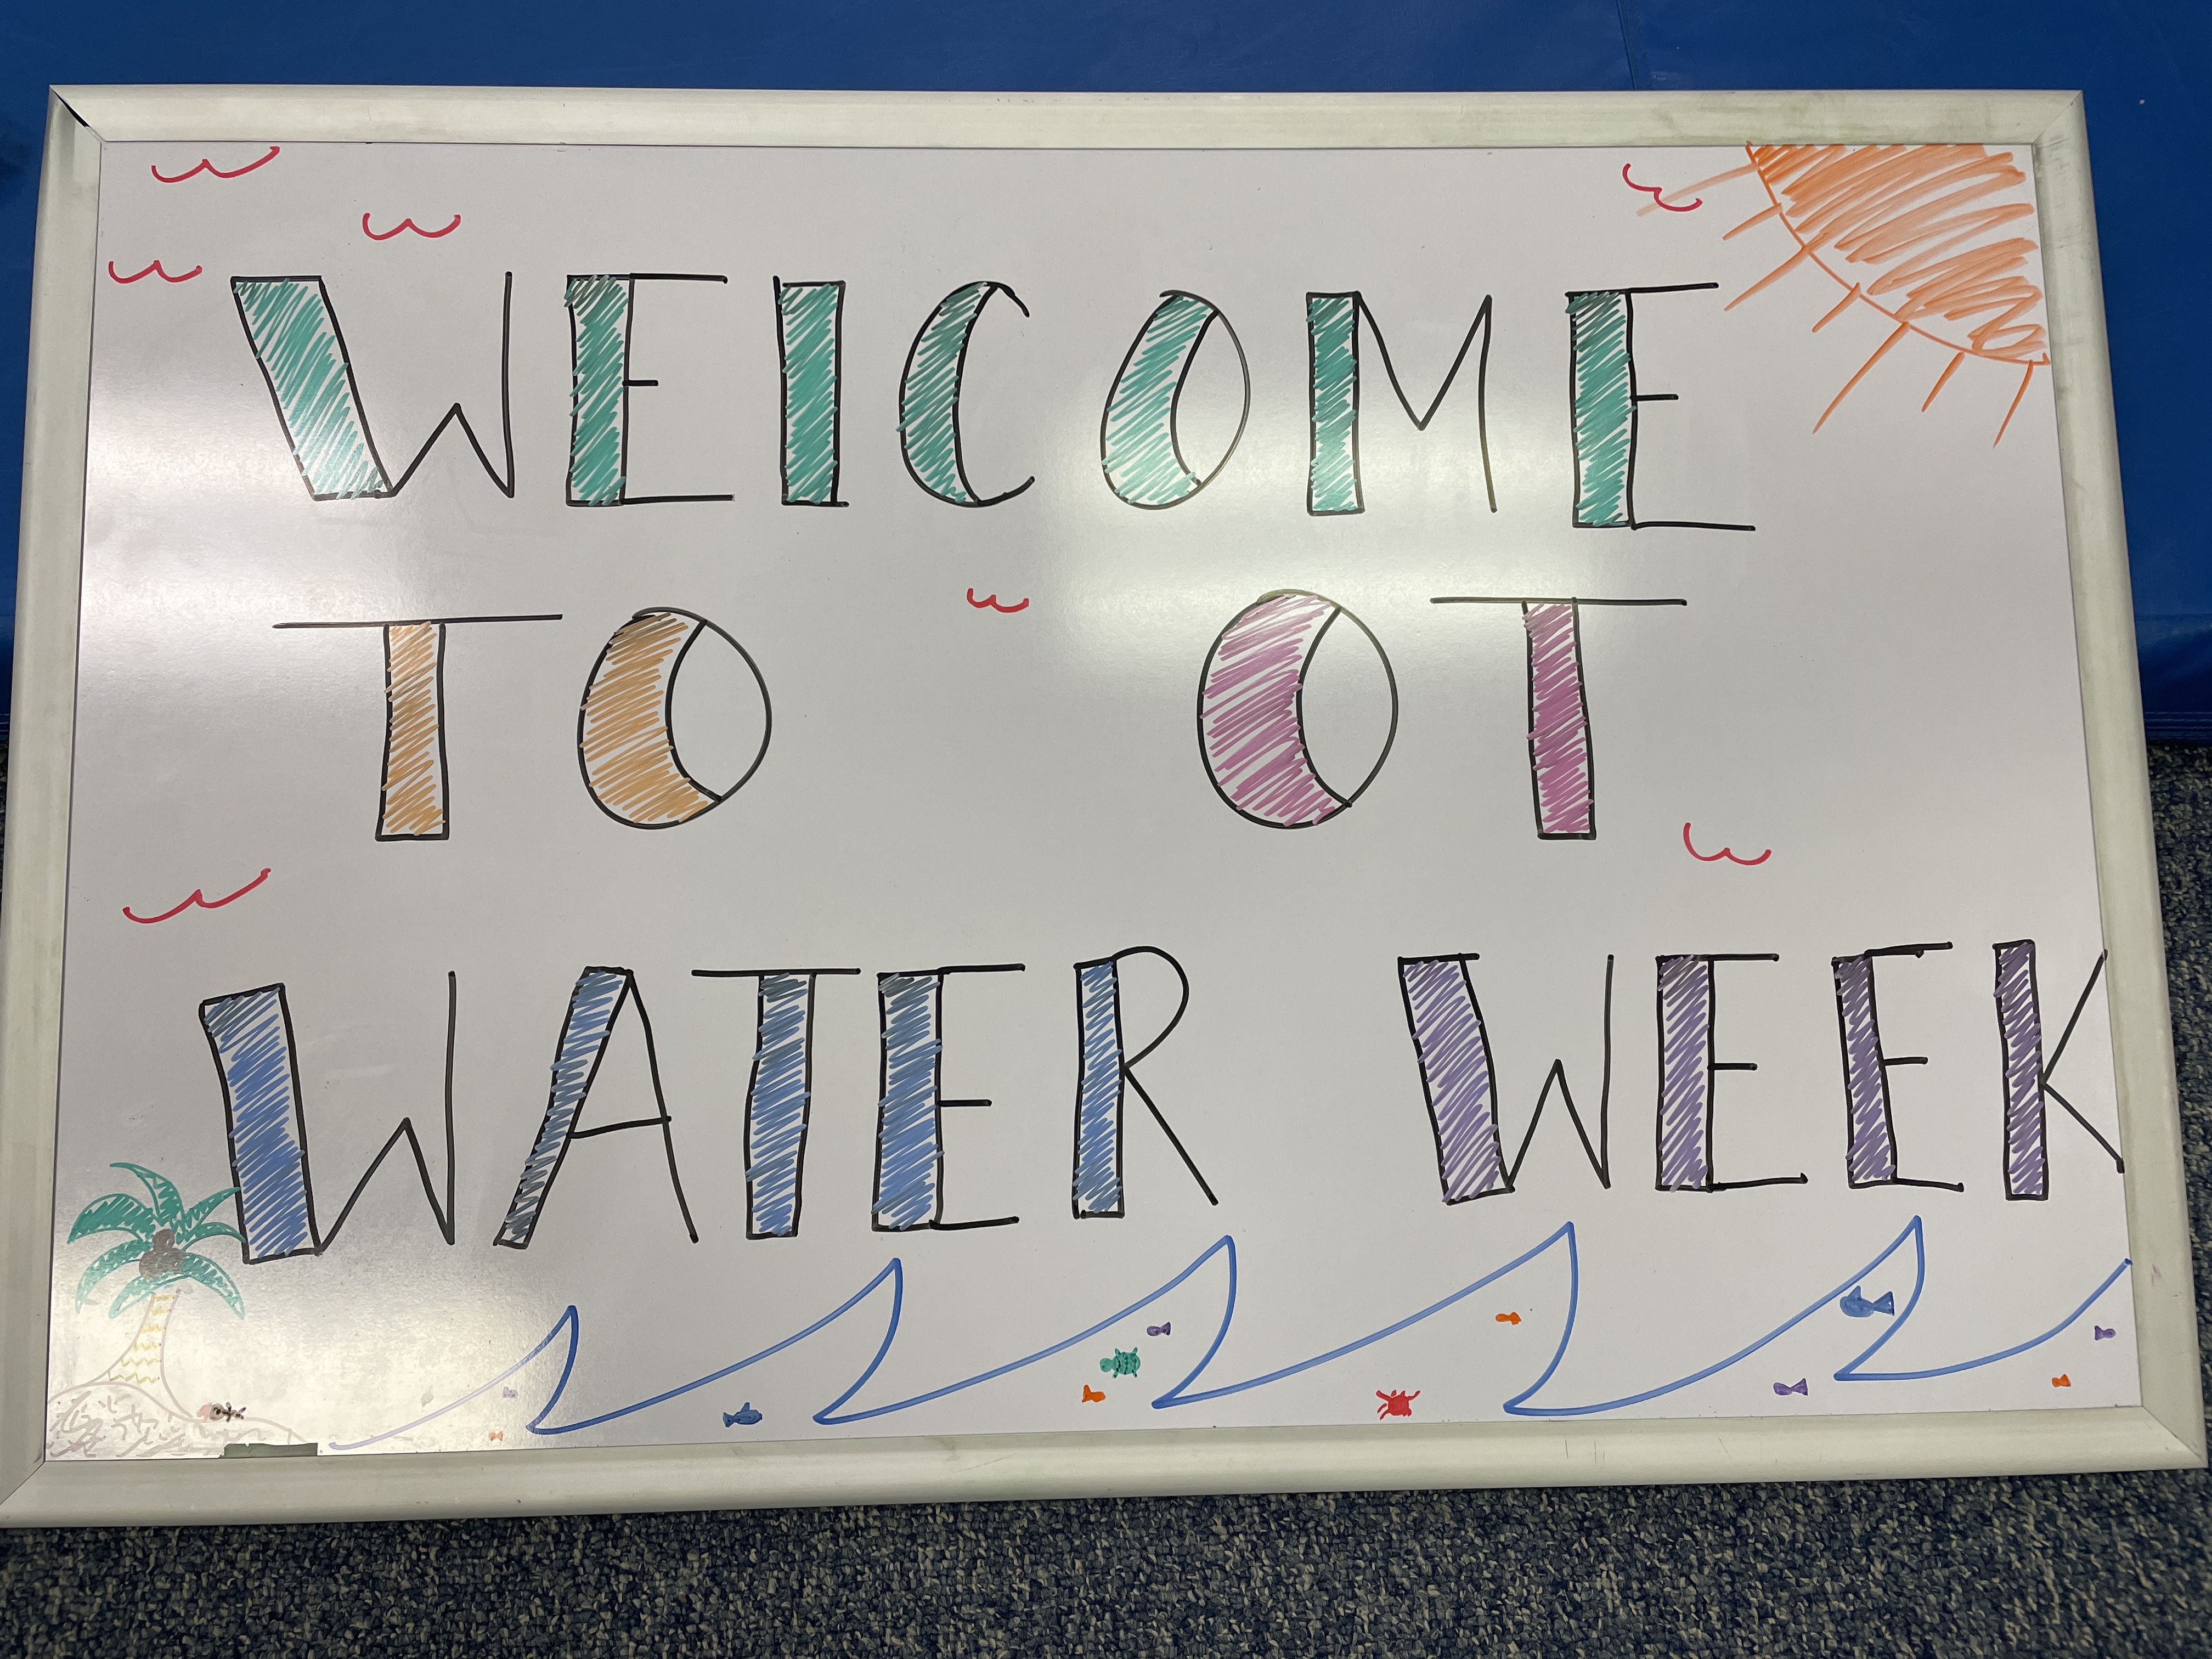 WELCOME
TO OT
WATER WEEK